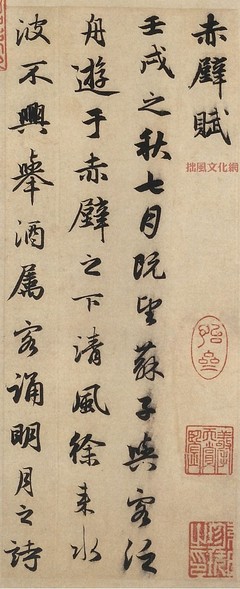 赤壁賦
壬戌之秋七月既望蘇子與客泛
舟遊于赤壁之下清風徐来水
波不興舉酒属客誦明月之詩
拙風文化網